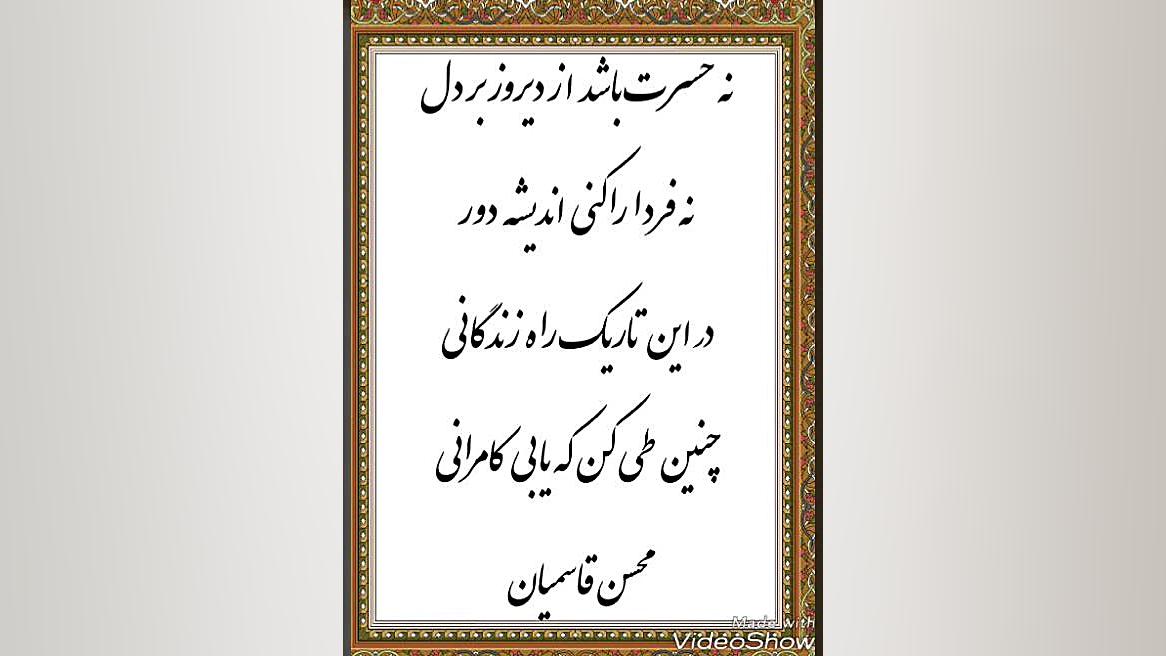 نه حسرت باشد از دیروز بر دل
نه فردا را کنی اندیشه دور
در این تاریک راه زندگانی
چنین طی کن که یابی کامرانی
محسن قاسمیان
Made with
VideoShow